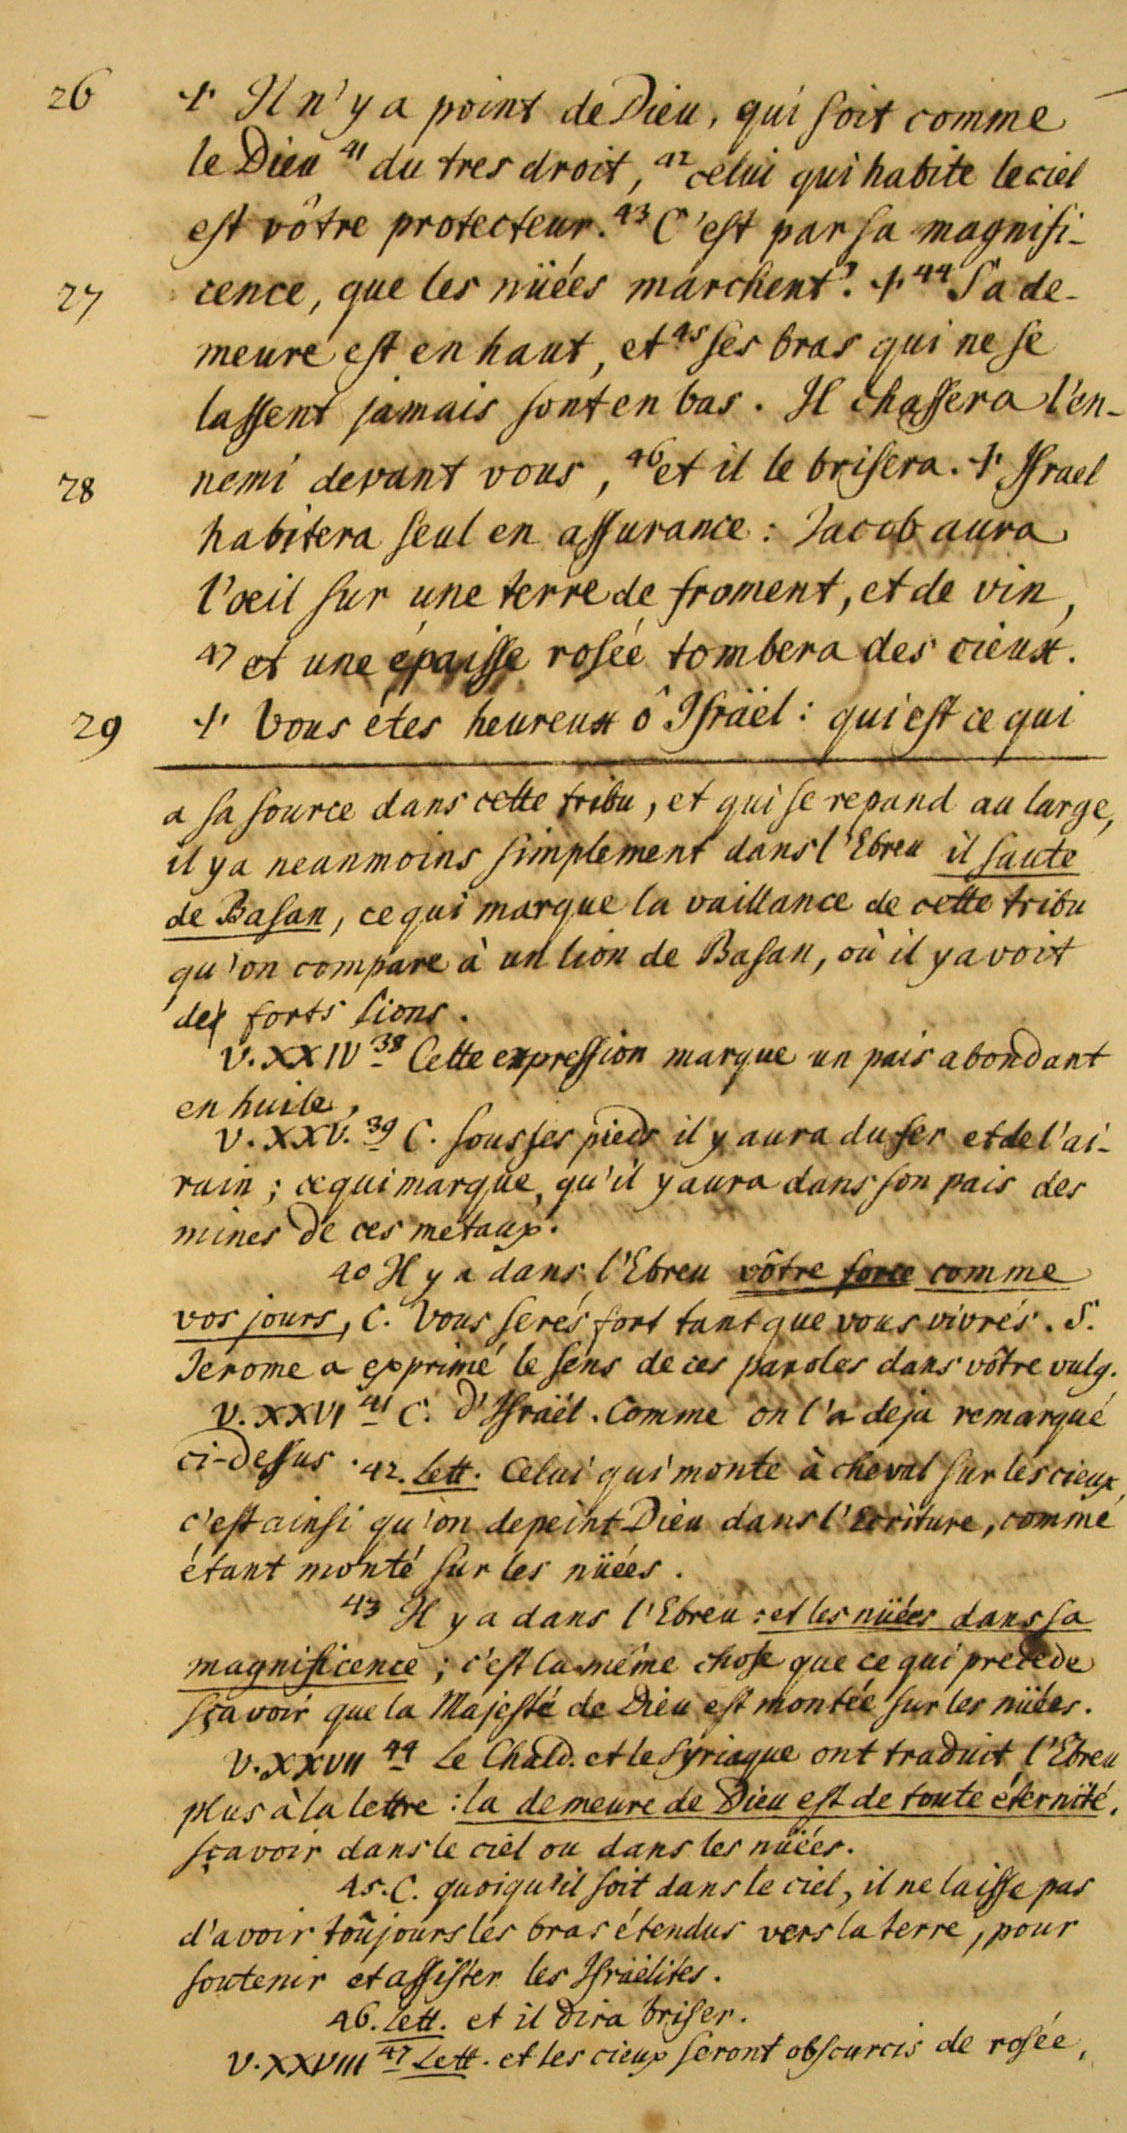 26 ✝ Il n'y a point de Dieu, qui soit comme
le Dieu 41 du tres droit, 42 celui qui habite le ciel
est vôtre protecteur. 43 C'est par sa magnifi-
27 cence, que les nüées marchent. ✝ 44 Sa de-
meure est en haut, et 45 ses bras qui ne se
lassent jamais sont en bas. Il chassera l'en-
28 nemi devant vous, 46 et il le brisera. ✝ Israel
habitera seul en assurance: Jacob aura
l'œil sur une terre de froment, et de vin,
47 et une épaisse rosée tombera des cieux.
29 ✝ Vous étes heureux ô Israël: qui est ce qui
a sa source dans cette tribu, et qui se repand au large,
il y a neanmoins simplement dans l'Ebreu il saute
de Basan, ce qui marque la vaillance de cette tribu
qu'on compare à un lion de Basan, où il y avoit
des forts lions.
V. XXIV 38 Cette expression marque un pais abondant
en huile.
V. XXV. 39 C. sous ses pieds il y aura du fer et de l'ai-
rain; ce qui marque, qu'il y aura dans son pais des
mines de ces metaux.
40 Il y a dans l'Ebreu vôtre force comme
vos jours, C. Vous serés fort tant que vous vivrés. S.
Jerome a exprimé le sens de ces paroles dans vôtre vulg.
V. XXVI 41 C. d'Israël. Comme on l'a deja remarqué
ci-dessus. 42. Lett. Celui qui monte à cheval sur les cieux,
c'est ainsi qu'on depeint Dieu dans l'Ecriture, comme
étant monté sur les nüées.
43 Il y a dans l'Ebreu: et les nüées dans sa
magnificence; c'est la même chose que ce qui precede
sçavoir que la Majesté de Dieu est montée sur les nüées.
V. XXVII 44 Le Chald. et le Syriaque ont traduit l'Ebreu
plus à la lettre: la demeure de Dieu est de toute éternité,
sçavoir dans le ciel ou dans les nüées.
45. C. quoiqu'il soit dans le ciel, il ne laisse pas
d'avoir toûjours les bras étendus vers la terre, pour
soutenir et assister les Israëlites.
46. Lett. et il dira briser.
V. XXVIII 47 Lett. et les cieux seront obscurcis de rosée,